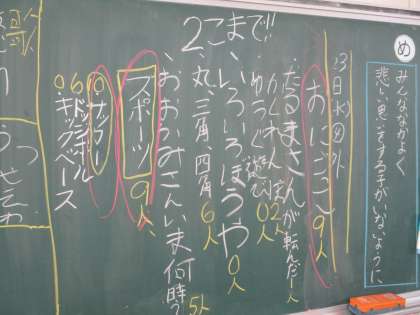 め
みんななかよく
悲しい思いをする子がいないように
13日(水)④外
おにごっこ 9人
だるまさんが転んだ 1人
かくれんぼ 2人
ゆうぐ遊び 0
いろいろぼうや 0人
丸、三角、四角 6人
おおかみさんいま何時? 5人
2こまで!!
スポーツ 9人
サッカー
ドッジボール
6 キックベース